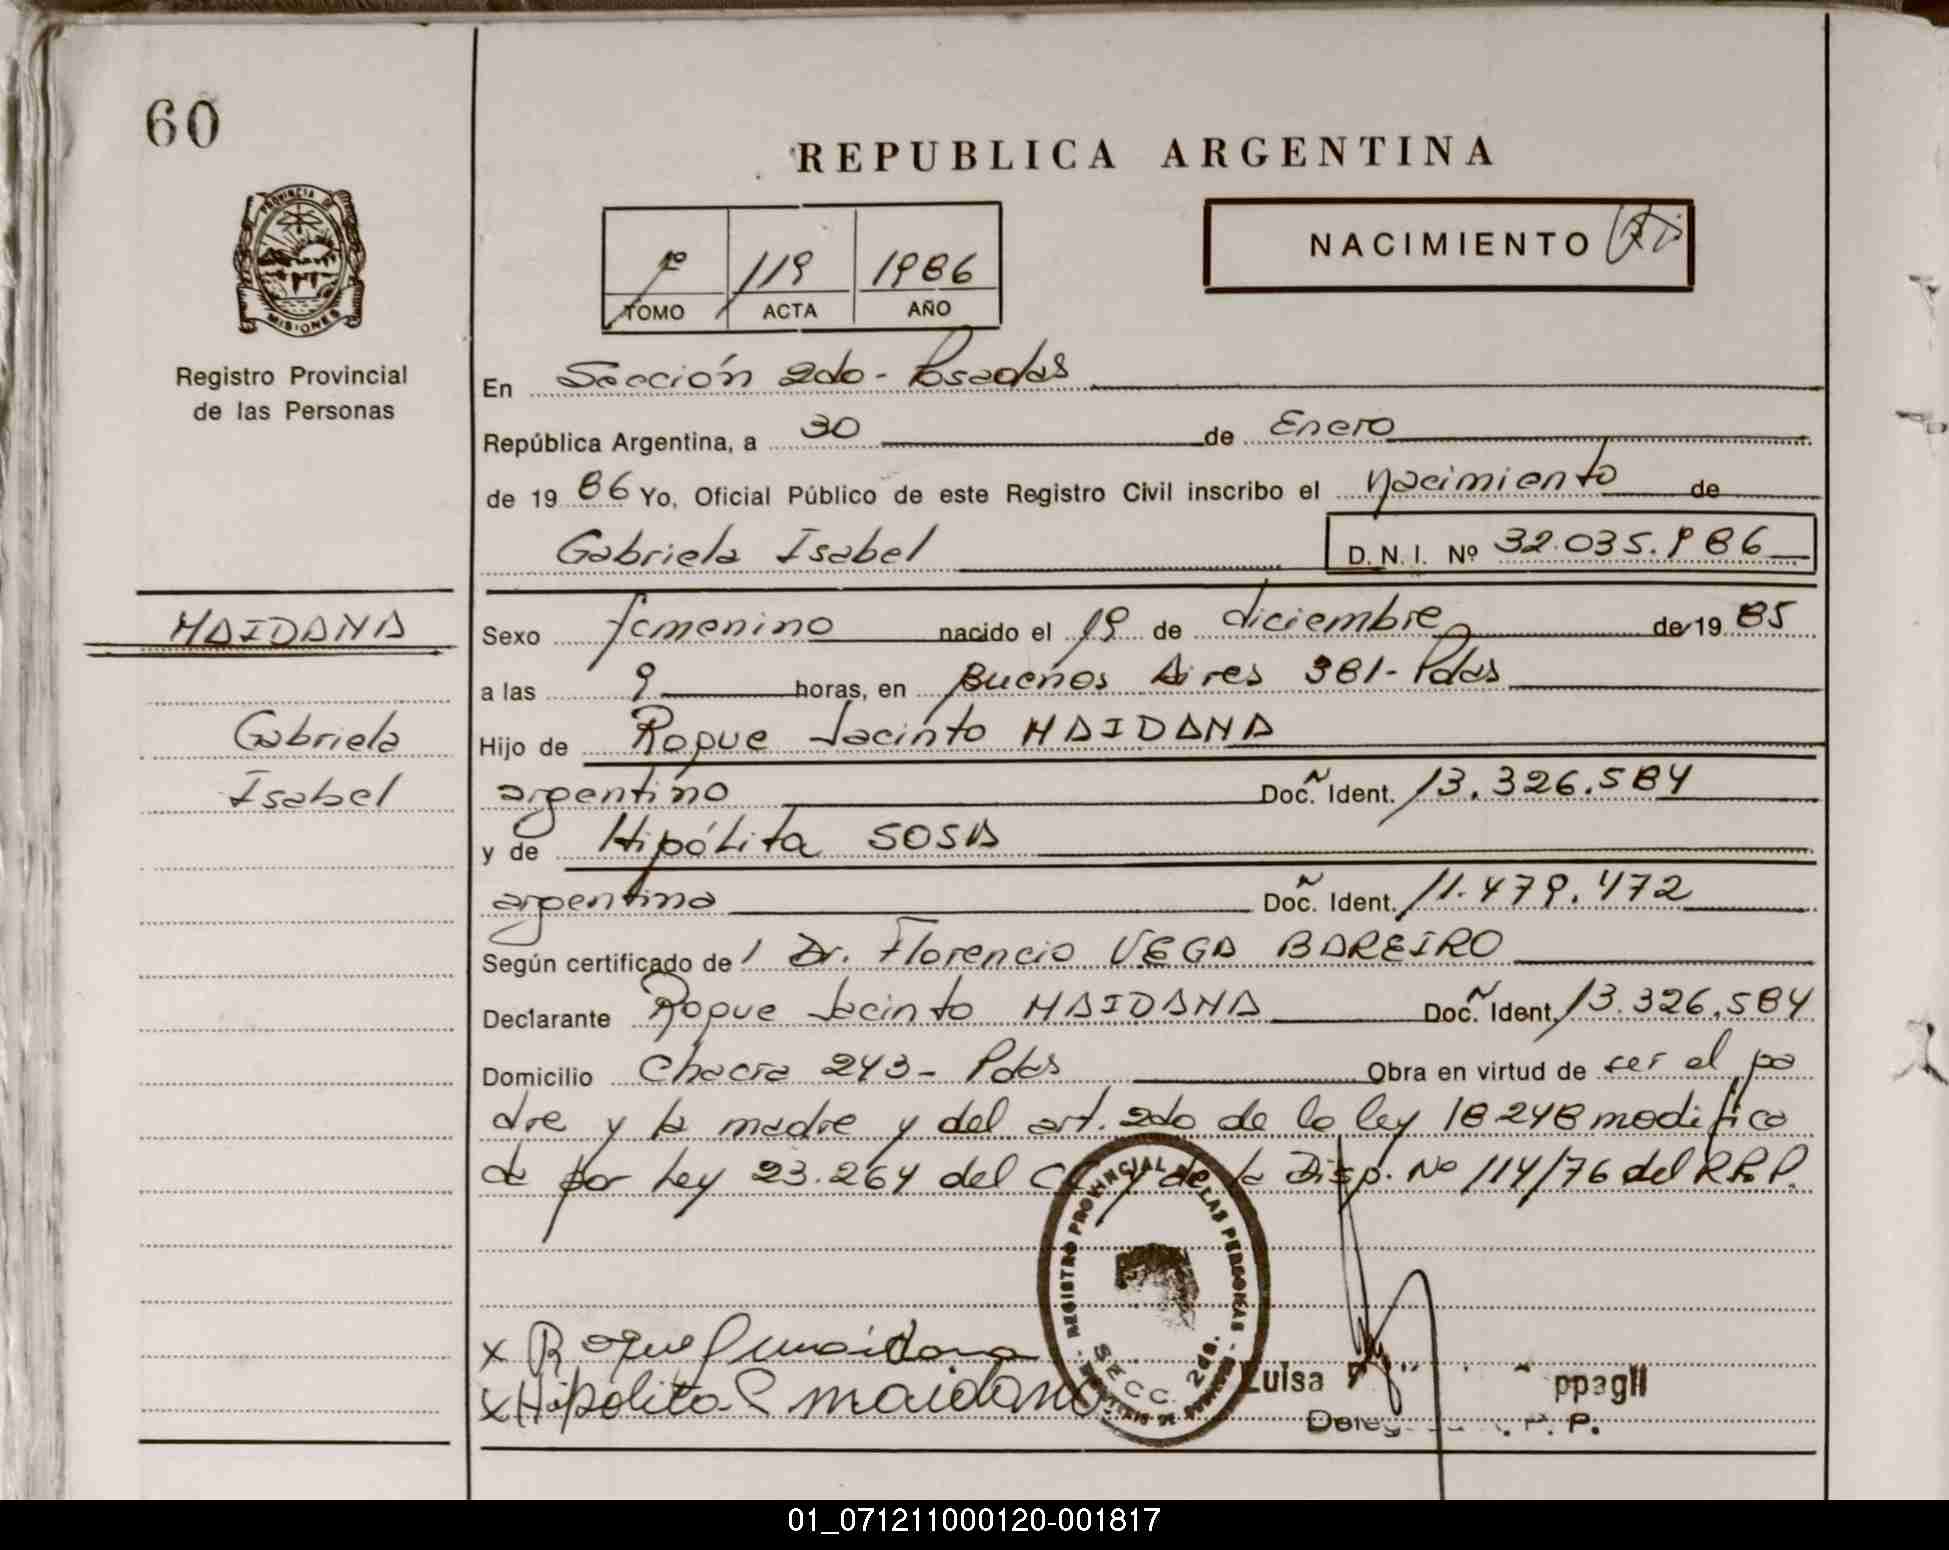 60
REPUBLICA ARGENTINA
PROVINCIA DE
MISIONES
Registro Provincial
de las Personas
1º 119 1986
TOMO ACTA AÑO
NACIMIENTO
En Sección 2da - Posadas
República Argentina, a 30 de Enero
de 19 86 Yo, Oficial Público de este Registro Civil inscribo el Nacimiento de
Gabriela Isabel D. N. I. Nº 32.035.986
MAIDANA
Sexo femenino nacido el 19 de diciembre de 19 85
a las 9 horas, en Buenos Aires 381 - Pdas
Gabriela
Hijo de Roque Jacinto MAIDANA
Isabel
argentino Doc. Ident. 13.326.584
y de Hipólita SOSA
argentina Doc. Ident. 11.479.472
Según certificado de Dr. Florencio VEGA BAREIRO
Declarante Roque Jacinto MAIDANA Doc. Ident. 13.326.584
Domicilio Chacra 243 - Pdas Obra en virtud de ser el pa
dre y la madre y del art. 2do de la ley 18248 modifica
da por Ley 23.264 del CC y de la Disp. Nº 114/76 del R.R.P.
REGISTRO PROVINCIAL DE LAS PERSONAS
SECC. 2da.
x Roque J maidana
x Hipolita S maidana
Luisa
P.
01_071211000120-001817